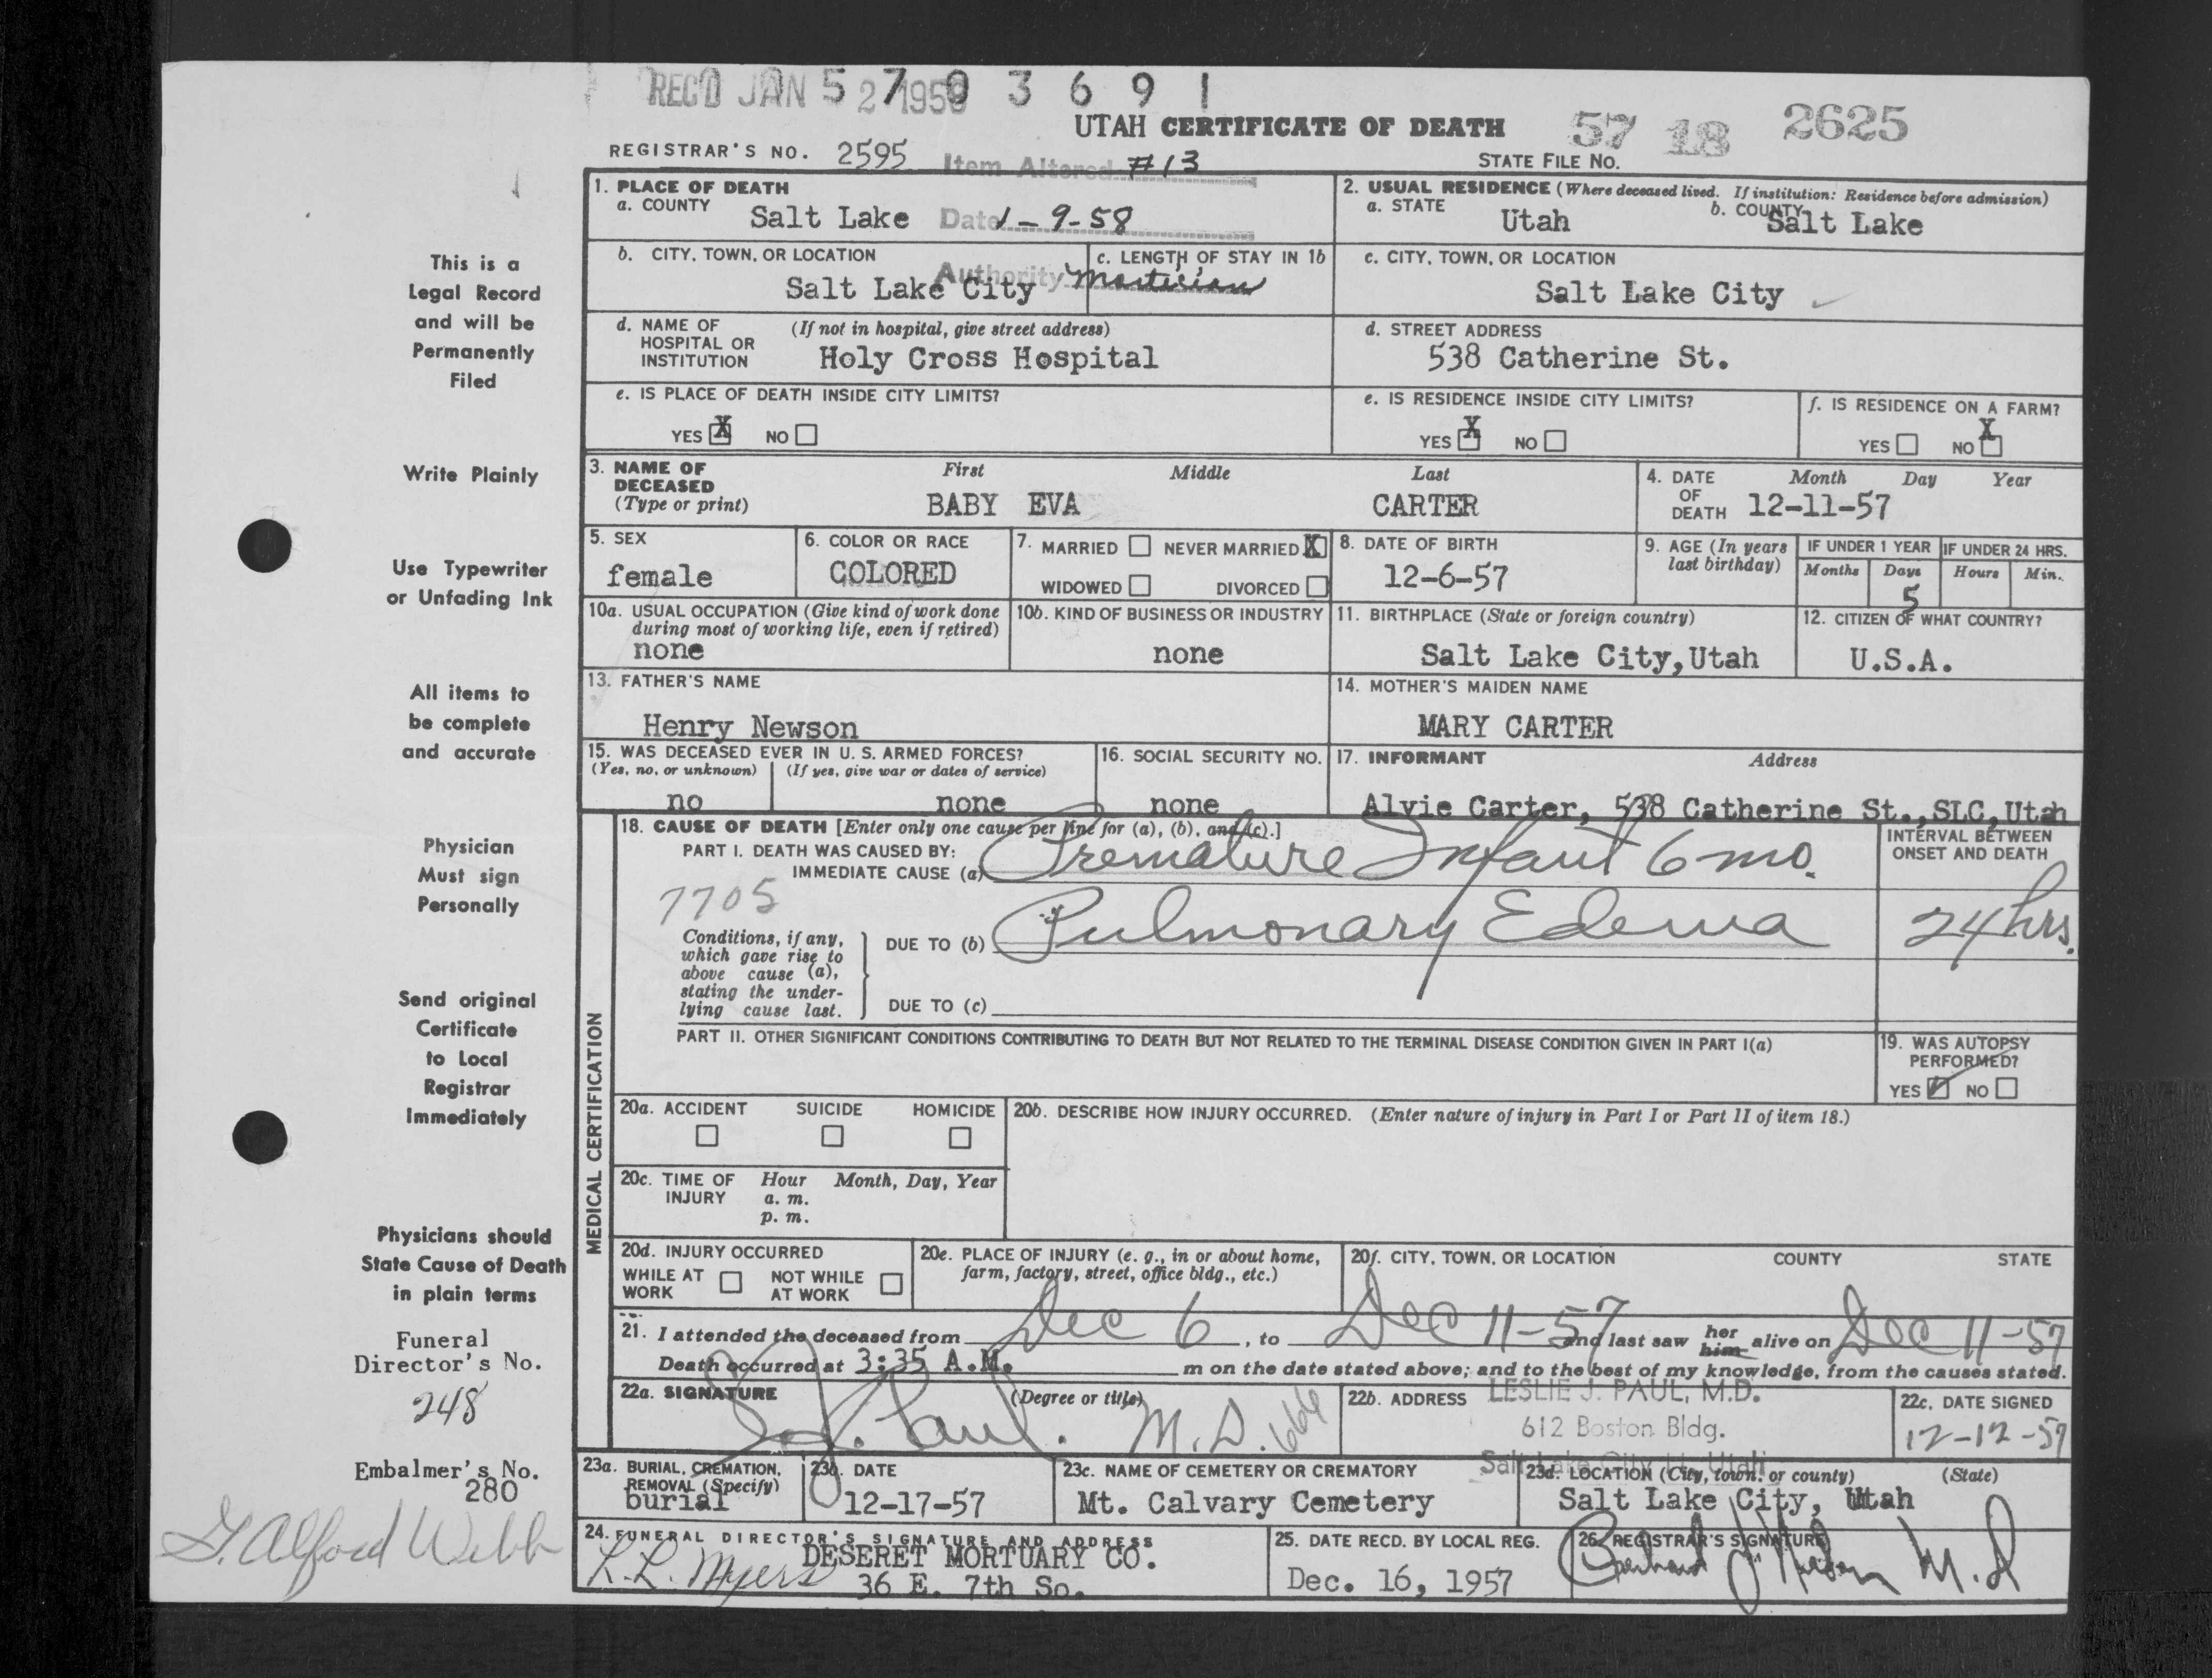 REC'D JAN 2 1958
5 7 0 3 6 9 1
UTAH CERTIFICATE OF DEATH
57 18 2625
REGISTRAR'S NO. 2595
Item Altered #13
STATE FILE NO.
1. PLACE OF DEATH
a. COUNTY Salt Lake
Date 1-9-58
2. USUAL RESIDENCE (Where deceased lived. If institution: Residence before admission)
a. STATE Utah b. COUNTY Salt Lake
b. CITY, TOWN, OR LOCATION Salt Lake City
Authority Mortician
c. LENGTH OF STAY IN 1b
c. CITY, TOWN, OR LOCATION
Salt Lake City
d. NAME OF HOSPITAL OR INSTITUTION (If not in hospital, give street address)
Holy Cross Hospital
d. STREET ADDRESS
538 Catherine St.
e. IS PLACE OF DEATH INSIDE CITY LIMITS?
YES X NO
e. IS RESIDENCE INSIDE CITY LIMITS?
YES X NO
f. IS RESIDENCE ON A FARM?
YES NO X
3. NAME OF DECEASED (Type or print)
First Middle Last
BABY EVA CARTER
4. DATE OF DEATH Month Day Year
12-11-57
5. SEX
female
6. COLOR OR RACE
COLORED
7. MARRIED NEVER MARRIED X
WIDOWED DIVORCED
8. DATE OF BIRTH
12-6-57
9. AGE (In years last birthday)
IF UNDER 1 YEAR IF UNDER 24 HRS.
Months Days Hours Min.
5
10a. USUAL OCCUPATION (Give kind of work done during most of working life, even if retired)
none
10b. KIND OF BUSINESS OR INDUSTRY
none
11. BIRTHPLACE (State or foreign country)
Salt Lake City, Utah
12. CITIZEN OF WHAT COUNTRY?
U.S.A.
13. FATHER'S NAME
Henry Newson
14. MOTHER'S MAIDEN NAME
MARY CARTER
15. WAS DECEASED EVER IN U. S. ARMED FORCES?
(Yes, no, or unknown) (If yes, give war or dates of service)
no none
16. SOCIAL SECURITY NO.
none
17. INFORMANT Address
Alvie Carter, 538 Catherine St., SLC, Utah
MEDICAL CERTIFICATION
18. CAUSE OF DEATH [Enter only one cause per line for (a), (b), and (c).]
PART I. DEATH WAS CAUSED BY:
IMMEDIATE CAUSE (a) Premature Infant 6 mo.
INTERVAL BETWEEN ONSET AND DEATH
7705
Conditions, if any, which gave rise to above cause (a), stating the underlying cause last.
DUE TO (b) Pulmonary Edema
24 hrs.
DUE TO (c)
PART II. OTHER SIGNIFICANT CONDITIONS CONTRIBUTING TO DEATH BUT NOT RELATED TO THE TERMINAL DISEASE CONDITION GIVEN IN PART I(a)
19. WAS AUTOPSY PERFORMED?
YES NO
20a. ACCIDENT SUICIDE HOMICIDE
20b. DESCRIBE HOW INJURY OCCURRED. (Enter nature of injury in Part I or Part II of item 18.)
20c. TIME OF INJURY Hour Month, Day, Year
a. m.
p. m.
20d. INJURY OCCURRED
WHILE AT WORK NOT WHILE AT WORK
20e. PLACE OF INJURY (e. g., in or about home, farm, factory, street, office bldg., etc.)
20f. CITY, TOWN, OR LOCATION COUNTY STATE
21. I attended the deceased from Dec 6, to Dec 11-57 and last saw her him alive on Dec 11-57
Death occurred at 3:35 A.M. m on the date stated above; and to the best of my knowledge, from the causes stated.
22a. SIGNATURE (Degree or title)
L. J. Paul. M.D. 666
22b. ADDRESS LESLIE J. PAUL, M.D.
612 Boston Bldg.
Salt Lake City 11, Utah
22c. DATE SIGNED
12-12-57
23a. BURIAL, CREMATION, REMOVAL (Specify)
burial
23b. DATE
12-17-57
23c. NAME OF CEMETERY OR CREMATORY
Mt. Calvary Cemetery
23d. LOCATION (City, town, or county) (State)
Salt Lake City, Utah
24. FUNERAL DIRECTOR'S SIGNATURE AND ADDRESS
R. R. Myers DESERET MORTUARY CO.
36 E. 7th So.
25. DATE RECD. BY LOCAL REG.
Dec. 16, 1957
26. REGISTRAR'S SIGNATURE
M.D
This is a
Legal Record
and will be
Permanently
Filed
Write Plainly
Use Typewriter
or Unfading Ink
All items to
be complete
and accurate
Physician
Must sign
Personally
Send original
Certificate
to Local
Registrar
Immediately
Physicians should
State Cause of Death
in plain terms
Funeral
Director's No.
248
Embalmer's No.
280
G. Alford Webb